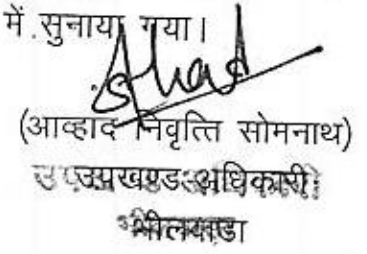 में सुनाया गया।
(आव्हाद निवृत्ति सोमनाथ)
उपखण्ड अधिकारी
भीलवाडा